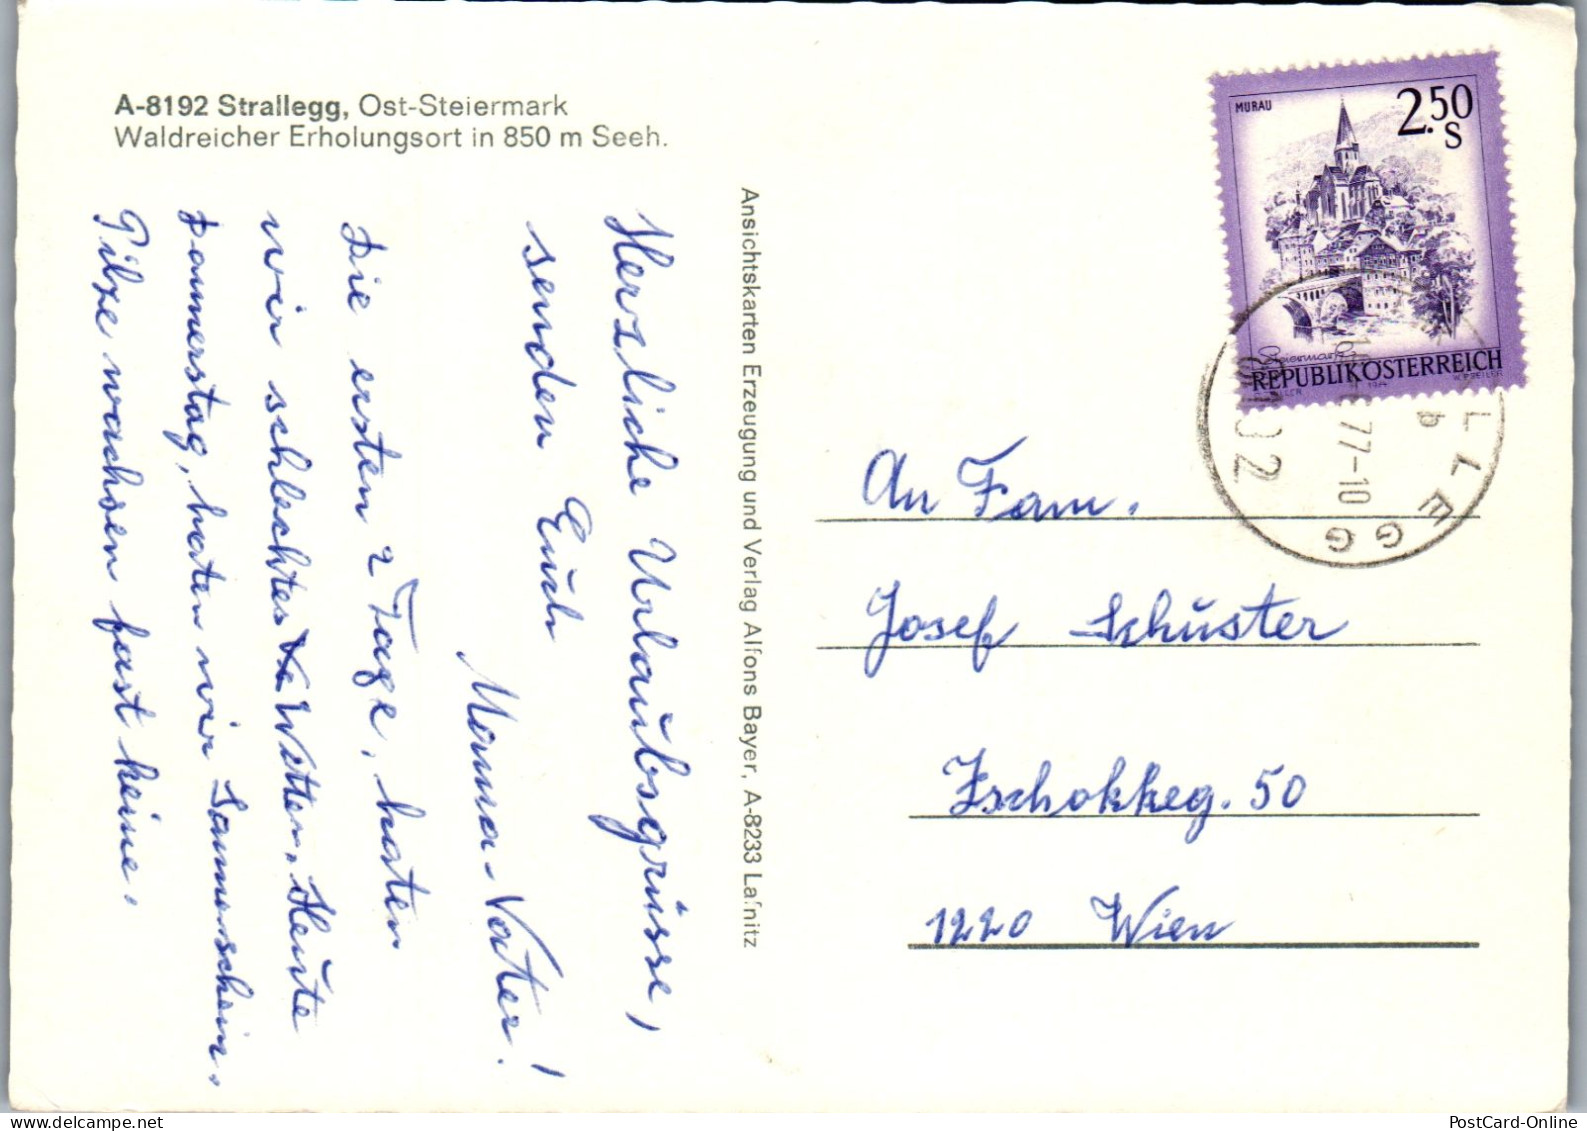 A-8192 Strallegg, Ost-Steiermark
Waldreicher Erholungsort in 850 m Seeh.
Herzliche Urlaubsgrüsse,
senden Euch
Mama-Vater!
Die ersten 2 Tage, hatten
wir schlechtes Wetter. Heute
Donnerstag, haten wir Sonnenschein.
Pilze wachsen fast keine.
Ansichtskarten Erzeugung und Verlag Alfons Bayer, A-8233 Lafnitz
MURAU
2.50
S
Steiermark
REPUBLIK ÖSTERREICH
1974
LLEGG
77-10
b
An Fam.
Josef Schuster
Zschokkeg. 50
1220 Wien
PostCard-Online